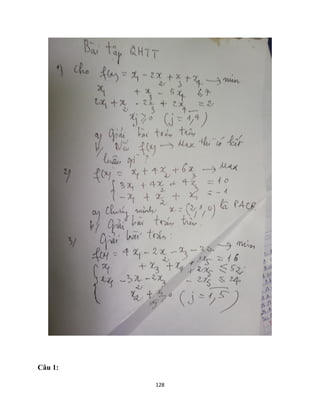 Bài tập QHTT
1) Cho f(x) = x₁ - 2x₂ + x₃ + x₄ → min
x₁ + x₃ - 5x₄ ≤ 7
2x₁ + x₂ - 2x₃ + 2x₄ = 2
xⱼ ≥ 0 (j = 1,4)
a) Giải bài toán trên
b) Nếu f(x) → Max thì có kết
luận gì?
2) f(x) = x₁ + 4x₂ + 6x₃ → Max
3x₁ + 4x₂ + 4x₃ = 10
-x₁ + x₂ + x₃ = -1
a) Chứng minh x = (2,1,0) là PACB
b) Giải bài toán trên
3) Giải bài toán:
f(x) = 4x₁ - 2x₂ - x₃ → min
x₁ + x₃ + x₄ + 2x₅ ≤ 52
2x₁ - 3x₂ - 2x₃ - 2x₅ ≤ 24
(j = 1,5)
Câu 1:
128